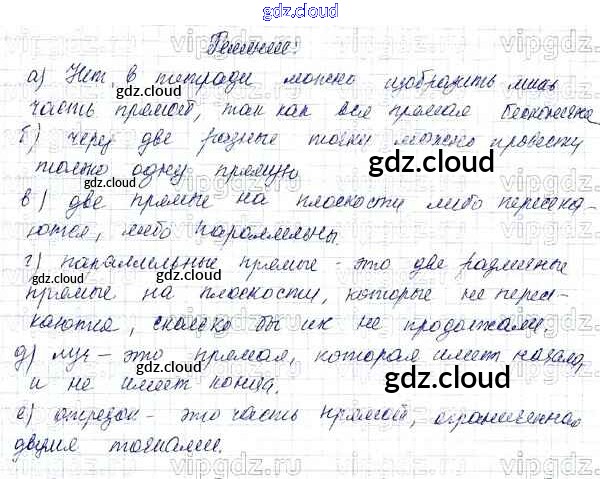 gdz.cloud
gdz.cloud
Решение:
а) Нет, в тетради можно изобразить лишь
часть прямой, так как вся прямая бесконечна
б) через две разные точки можно провести
только одну прямую.
gdz.cloud
gdz.cloud
в) две прямые на плоскости либо пересека-
ются, либо параллельны.
gdz.cloud
г) параллельные прямые - это две различные
gdz.cloud
gdz.cloud
прямые на плоскости, которые не перес-
каются, сколько бы их не продолжали.
д) луч - это прямая, которая имеет начало,
и не имеет конца.
gdz.cloud
gdz.cloud
е) отрезок - это часть прямой, ограниченная
двумя точками.
gdz.cloud